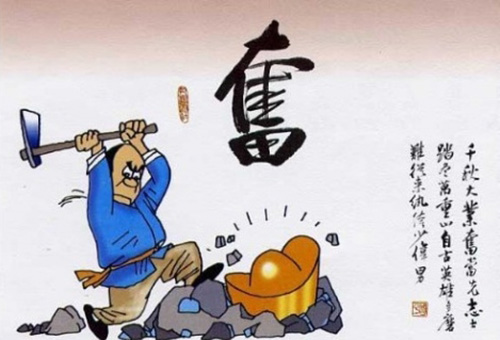 奮
千秋大業奮當先志士
踏尽萬重山自古英雄多磨
難從来仇侈少偉男